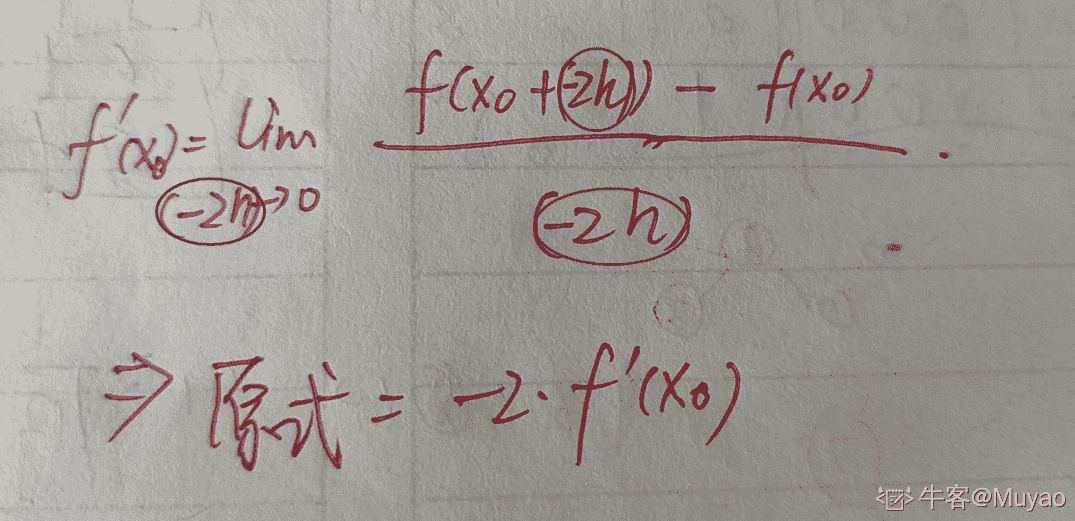 f'(x₀) = lim (-2h)→0 f(x₀ + (-2h)) - f(x₀) / (-2h) .
⇒ 原式 = -2 · f'(x₀)
牛客@Muyao